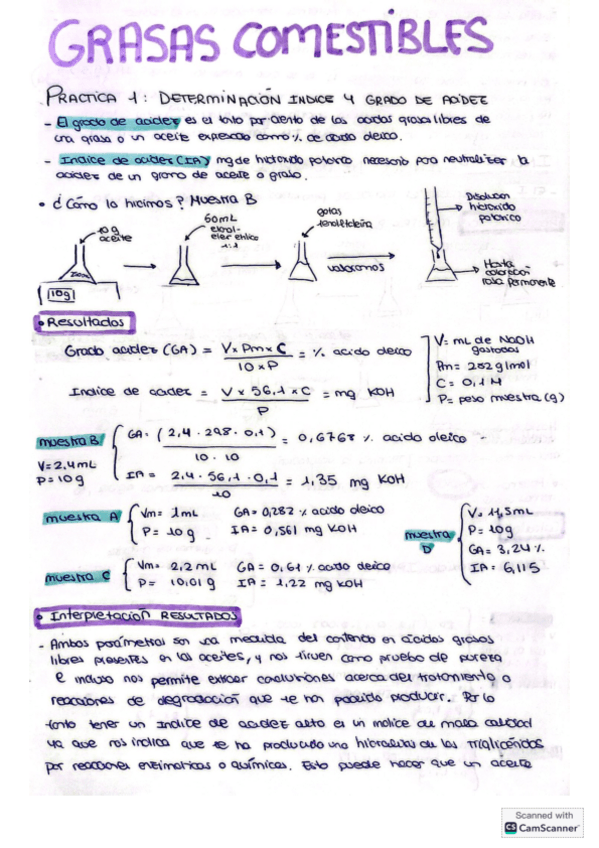 GRASAS COMESTIBLES
PRACTICA 1: DETERMINACIÓN INDICE Y GRADO DE ACIDEZ
- El grado de acidez es el tanto por ciento de los acidos grasos libres de
una grasa o un aceite expresado como % de acido oleico.
- Indice de acidez (IA) mg de hidroxido potasico necesario para neutralizar la
acidez de un gramo de aceite o grasa.
• ¿Cómo lo hicimos? Muestra B
10 g
aceite
10g
60 mL
etanol-
eter etilico
1:1
gotas
fenolftaleina
valoramos
Disolucion
hidroxido
potasico
Hasta
coloracion
rosa permanente
• Resultados
Grado acidez (GA) = V x Pm x C / 10 x P = % acido oleico
Indice de acidez = V x 56,1 x C / P = mg KOH
V = mL de NaOH
gastados
Pm = 282 g/mol
C = 0,1 M
P = peso muestra (g)
muestra B
V = 2,4 mL
P = 10 g
GA = (2,4 · 298 · 0,1) / 10 · 10 = 0,6768 % acido oleico -
IA = 2,4 · 56,1 · 0,1 / 10 = 1,35 mg KOH
muestra A
Vm = 1 mL
P = 10 g
GA = 0,282 % acido oleico
IA = 0,561 mg KOH
muestra C
Vm = 2,2 mL
P = 10,01 g
GA = 0,61 % acido oleico
IA = 1,22 mg KOH
muestra
D
V = 11,5 mL
P = 10 g
GA = 3,24 %
IA = 6,115
• Interpretación RESULTADOS
- Ambos parámetros son una medida del contenido en ácidos grasos
libres presentes en los aceites, y nos sirven como prueba de pureza
e incluso nos permite extraer conclusiones acerca del tratamiento o
reacciones de degradación que se han podido producir. Por lo
tanto tener un indice de acidez alto es un indice de mala calidad
ya que nos indica que se ha producido una hidrolisis de los triglicéridos
por reacciones enzimaticas o químicas. Esto puede hacer que un aceite
Scanned with
CS CamScanner